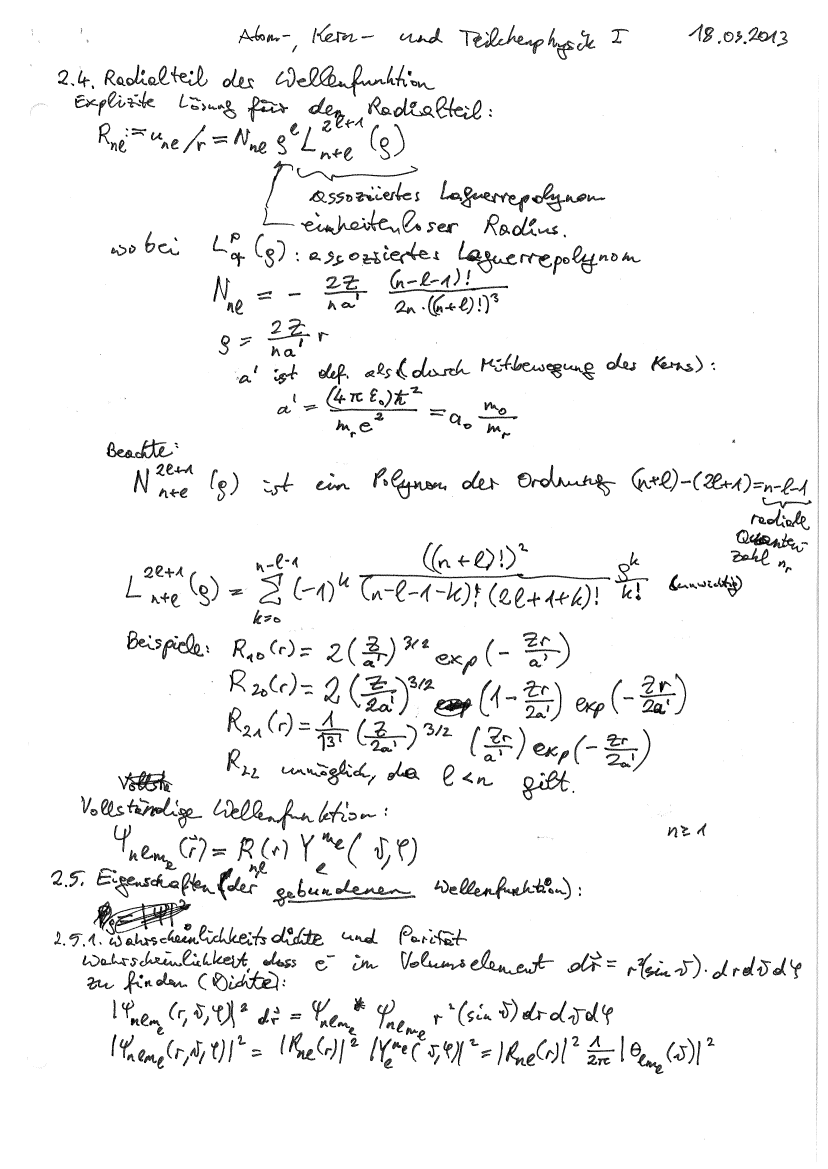 Atom-, Kern- und Teilchenphysik I 18.03.2013
2.4. Radialteil des Wellenfunktion
Explizite Lösung für den Radialteil:
R_nl := u_nl/r = N_nl ρ^l L_{n+l}^{2l+1}(ρ)
assoziiertes Laguerrepolynom
einheitenloser Radius.
wobei L_q^p(ρ): assoziiertes Laguerrepolynom
N_nl = - 2Z/(na') (n-l-1)!/(2n·((n+l)!)^3)
ρ = 2Z/(na') r
a' ist def. als (durch Mitbewegung des Kerns):
a' = (4πε₀)ħ²/(m_r e²) = a₀ m₀/m_r
Beachte:
N_{n+l}^{2l+1}(ρ) ist ein Polynom der Ordnung (n+l)-(2l+1)=n-l-1
radiale
Quanten-
zahl n_r
L_{n+l}^{2l+1}(ρ) = Σ_{k=0}^{n-l-1} (-1)^k ((n+l)!)²/((n-l-1-k)! (2l+1+k)!) ρ^k/k! (unwichtig)
Beispiele: R₁₀(r) = 2(Z/a')^{3/2} exp(-Zr/a')
R₂₀(r) = 2(Z/2a')^{3/2} (1-Zr/2a') exp(-Zr/2a')
R₂₁(r) = 1/√3 (Z/2a')^{3/2} (Zr/a') exp(-Zr/2a')
R₂₂ unmöglich, da l<n gilt.
Vollständige Wellenfunktion:
n≥1
Ψ_{nlm_l}(r⃗) = R_nl(r) Y_l^{m_l}(ϑ,φ)
2.5. Eigenschaften (der gebundenen Wellenfunktion):
2.5.1. Wahrscheinlichkeitsdichte und Parität
Wahrscheinlichkeit, dass e⁻ im Volumselement dr⃗ = r²(sin ϑ)·drdϑdφ
zu finden (Dichte):
|Ψ_{nlm_l}(r,ϑ,φ)|² dr⃗ = Ψ_{nlm_l}* Ψ_{nlm_l} r²(sin ϑ)drdϑdφ
|Ψ_{nlm_l}(r,ϑ,φ)|² = |R_nl(r)|² |Y_l^{m_l}(ϑ,φ)|² = |R_nl(r)|² 1/2π |Θ_{lm_l}(ϑ)|²